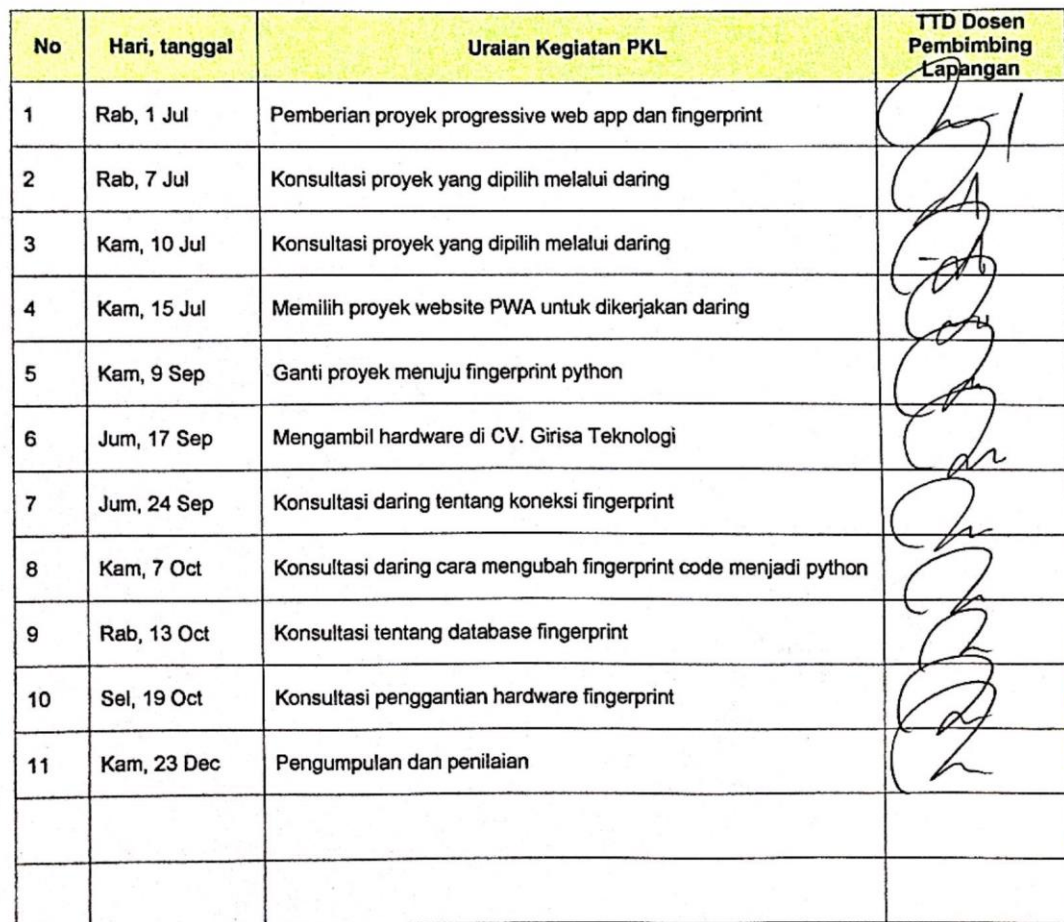 No Hari, tanggal Uraian Kegiatan PKL TTD Dosen
Pembimbing
Lapangan
1 Rab, 1 Jul Pemberian proyek progressive web app dan fingerprint
2 Rab, 7 Jul Konsultasi proyek yang dipilih melalui daring
3 Kam, 10 Jul Konsultasi proyek yang dipilih melalui daring
4 Kam, 15 Jul Memilih proyek website PWA untuk dikerjakan daring
5 Kam, 9 Sep Ganti proyek menuju fingerprint python
6 Jum, 17 Sep Mengambil hardware di CV. Girisa Teknologi
7 Jum, 24 Sep Konsultasi daring tentang koneksi fingerprint
8 Kam, 7 Oct Konsultasi daring cara mengubah fingerprint code menjadi python
9 Rab, 13 Oct Konsultasi tentang database fingerprint
10 Sel, 19 Oct Konsultasi penggantian hardware fingerprint
11 Kam, 23 Dec Pengumpulan dan penilaian